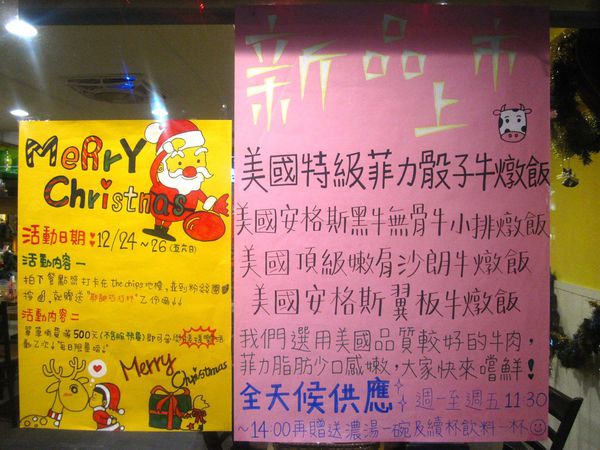 Merry
Christmas
活動日期：12/24~26(五六日)
活動內容一
拍下餐點照打卡在the chips地標，並到粉絲團
按，就贈送
乙份喲↓↓
活動內容二
單筆消費滿500元(不含服務費)即可
活
動乙次↓
Merry
Christmas
新品上市
美國特級菲力骰子牛燉飯
美國安格斯黑牛無骨牛小排燉飯
美國頂級嫩肩沙朗牛燉飯
美國安格斯翼板牛燉飯
我們選用美國品質較好的牛肉，
菲力脂肪少口感嫩，大家快來嚐鮮！
全天候供應 週一至週五11:30
~14:00再贈送濃湯一碗及續杯飲料一杯